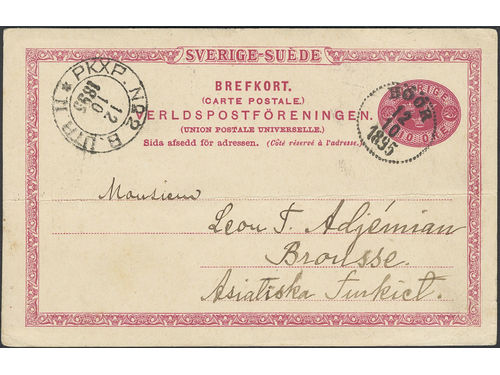 SVERIGE-SUÈDE
BREFKORT.
(CARTE POSTALE.)
VERLDSPOSTFÖRENINGEN.
(UNION POSTALE UNIVERSELLE.)
Sida afsedd för adressen. (Côté réservé à l'adresse.)
PKXP. Nº 2 B. UTR II
12
10
1895
SVERIGE
TIO ÖRE
HÖÖR
12
10
1895
Monsieur
Leon T. Adjémian
Brousse.
Asiatiska Turkiet.